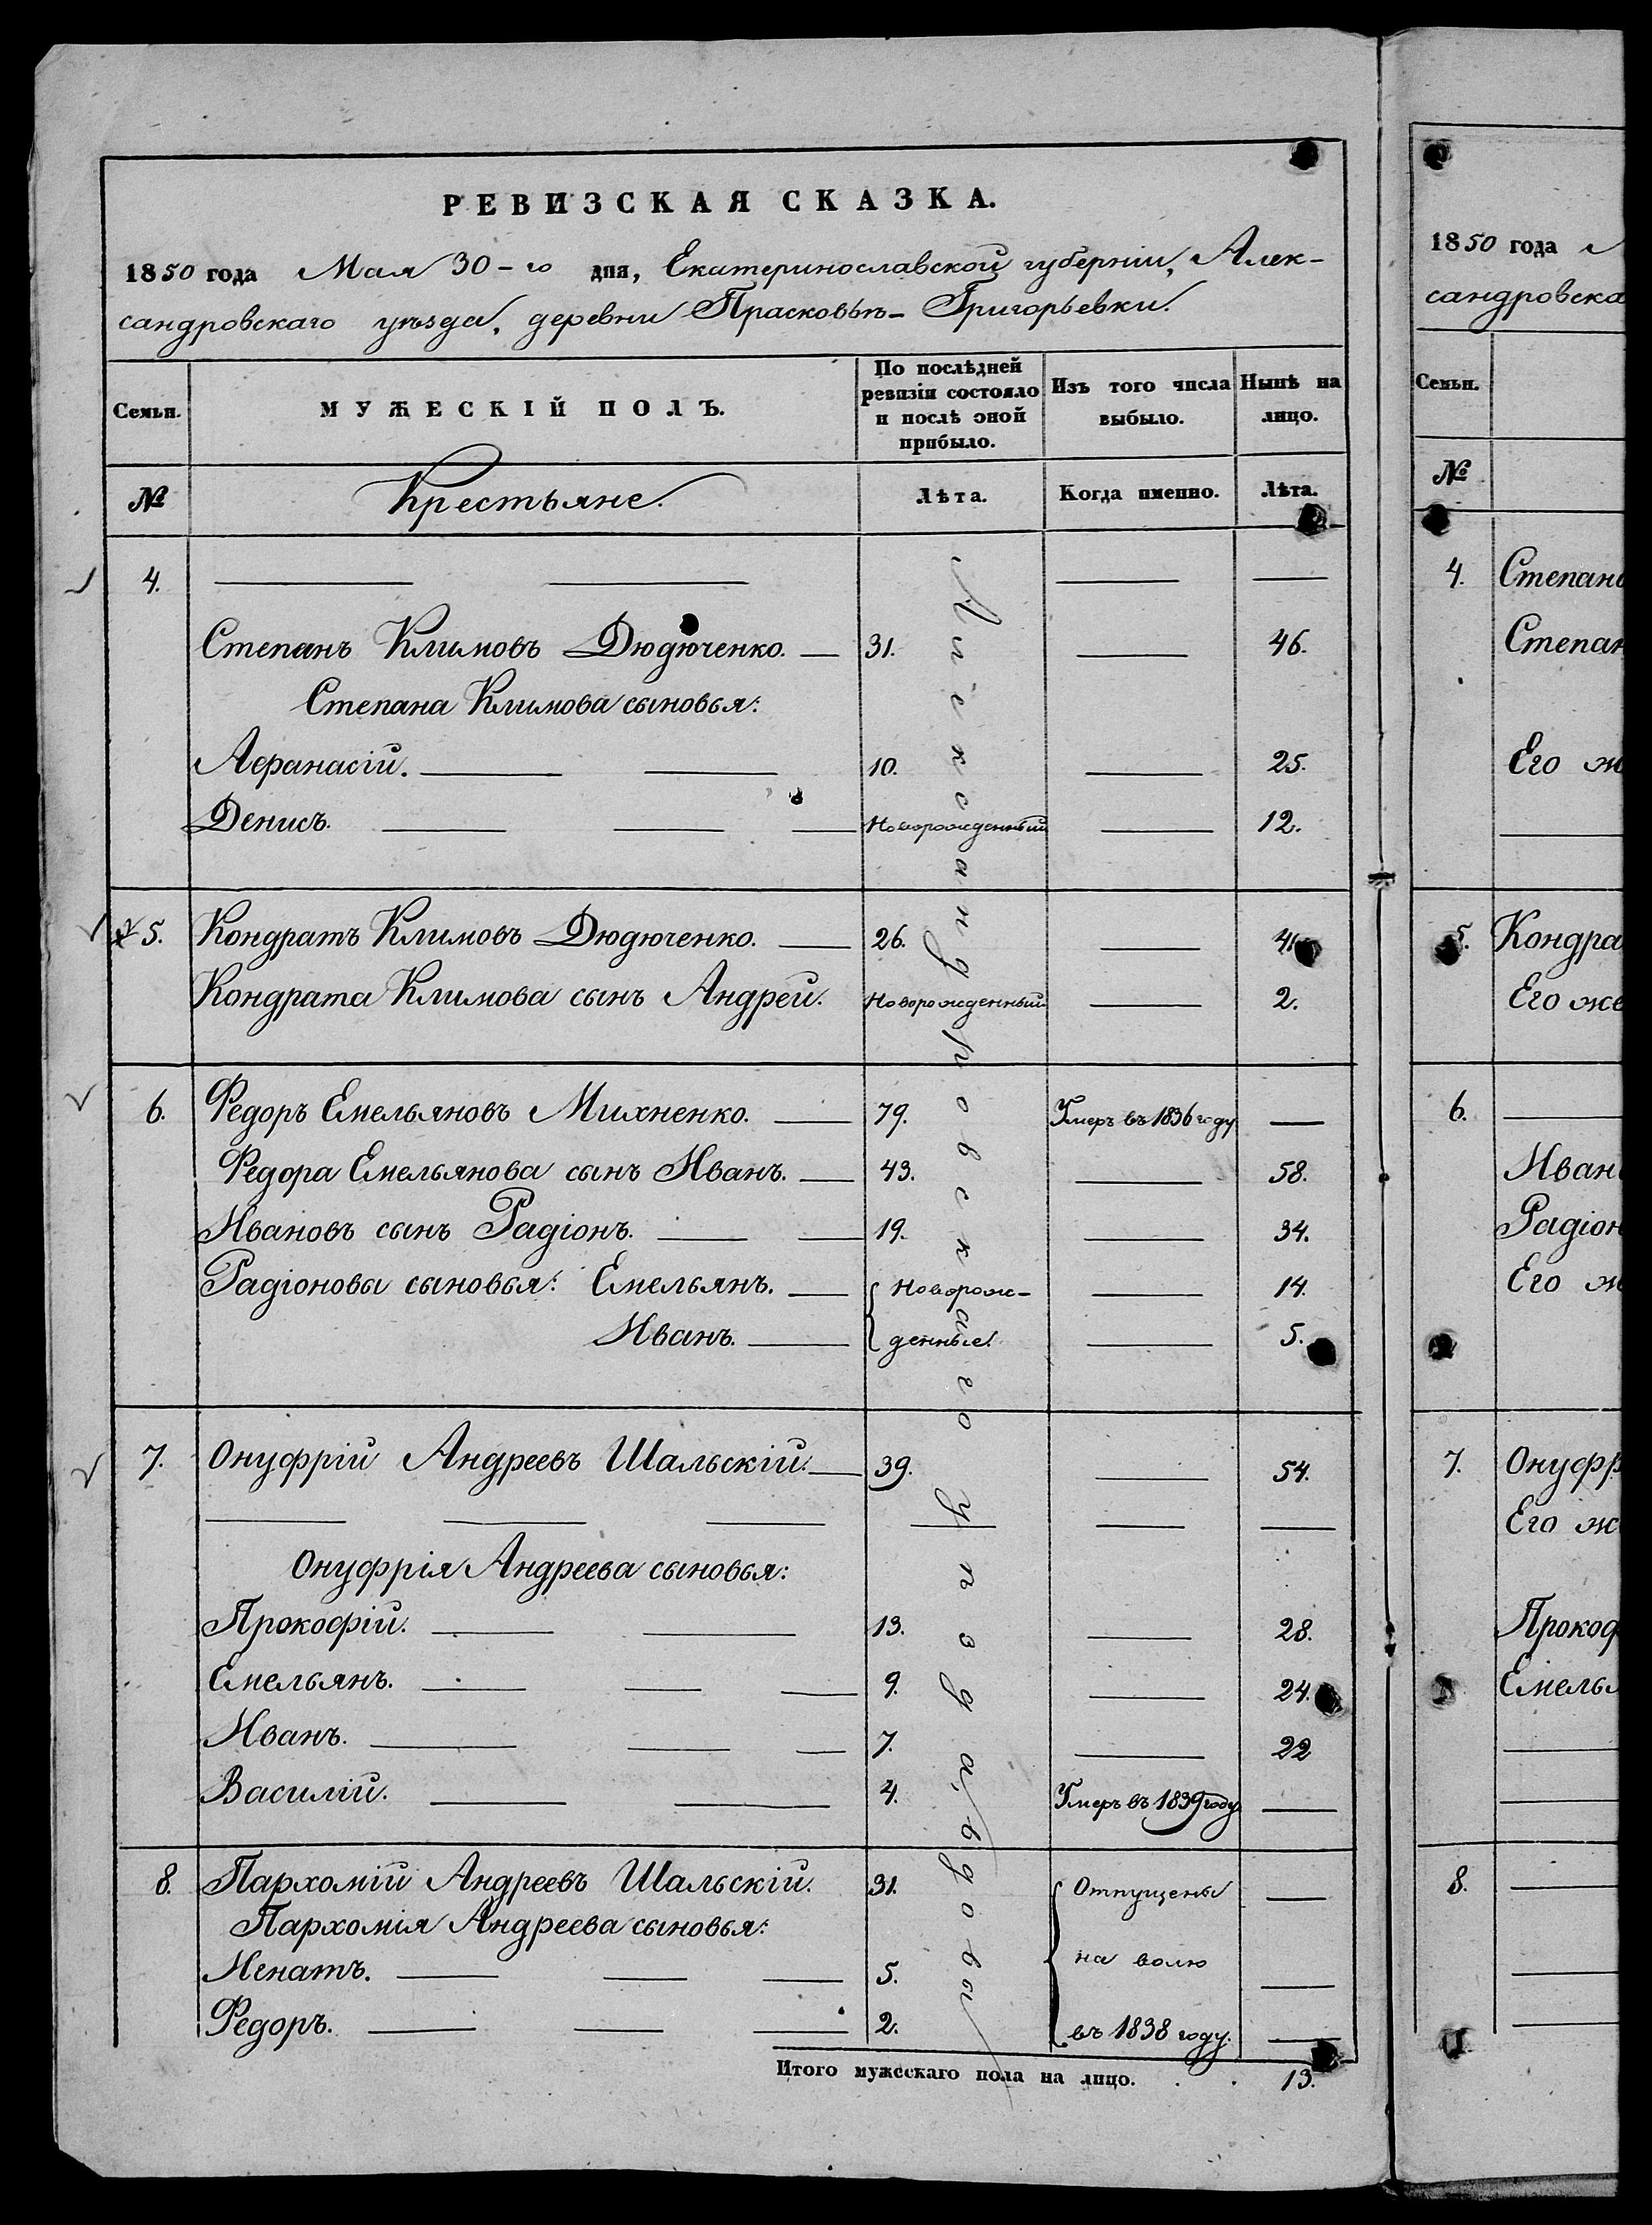 РЕВИЗСКАЯ СКАЗКА.
1850 года Мая 30-го дня, Екатеринославской губерніи, Алек-
сандровскаго уѣзда, деревни Прасковьѣ-Григорьевки.
Семьи. МУЖЕСКІЙ ПОЛЪ. По послѣдней ревизіи состояло и послѣ оной прибыло. Изъ того числа выбыло. Нынѣ на лицо.
№ Крестьяне. Лѣта. Когда именно. Лѣта.
4.
Степанъ Климовъ Дюдюченко. 31. 46.
Степана Климова сыновья:
Афанасій. 10. 25.
Денисъ. Новорожденный 12.
5. Кондратъ Климовъ Дюдюченко. 26. 41
Кондрата Климова сынъ Андрей. Новорожденный 2.
6. Федоръ Емельяновъ Михненко. 79. Умеръ въ 1836 году
Федора Емельянова сынъ Иванъ. 43. 58.
Ивановъ сынъ Радіонъ. 19. 34.
Радіоновы сыновья: Емельянъ. Новорож- 14.
Иванъ. денные. 5.
7. Онуфрій Андреевъ Шальскій. 39. 54.
Онуфрія Андреева сыновья:
Прокофій. 13. 28.
Емельянъ. 9. 24.
Иванъ. 7. 22
Василій. 4. Умеръ въ 1839 году
8. Пархомій Андреевъ Шальскій. 31. Отпущены
Пархомія Андреева сыновья:
Игнатъ. 5. на волю
Федоръ. 2. въ 1838 году.
Итого мужескаго пола на лицо. 13.
Александровскаго уѣзда, вдовы
1850 года
сандровска
Семьи.
№
4. Степана
Степан
Его ж
5. Кондра
Его же
6.
Иван
Радіон
Его ж
7. Онуфр
Его ж
Прокоф
Емелья
8.